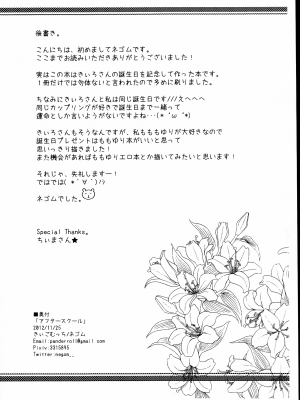 後書き。
こんにちは、初めましてネゴムです。
ここまでお読みいただきありがとうございました！
実はこの本はきぃろさんの誕生日を記念して作った本です。
1冊だけでは勿体ないと言われたので多めに刷りました。
ちなみにきぃろさんと私は同じ誕生日です///えへへへ
同じカップリングが好きで誕生日まで一緒って
運命としか言いようがないですよね…(*´ω`*)
きぃろさんもそうなんですが、私もももゆりが大好きなので
誕生日プレゼントはももゆり本がいいと思って
思いっきり描きました！
また機会があればももゆりエロ本とか描いてみたいと思います！
それじゃ、失礼しますー！
ではでは(*´∀`)ﾉｼ
ネゴムでした。
Special Thanks.
ちぃまさん★
■奥付
「アフタースクール」
2012/11/25
きぃごむっち/ネゴム
Email:panderroll@gmail.com
Pixiv:3315895
Twitter:negom_